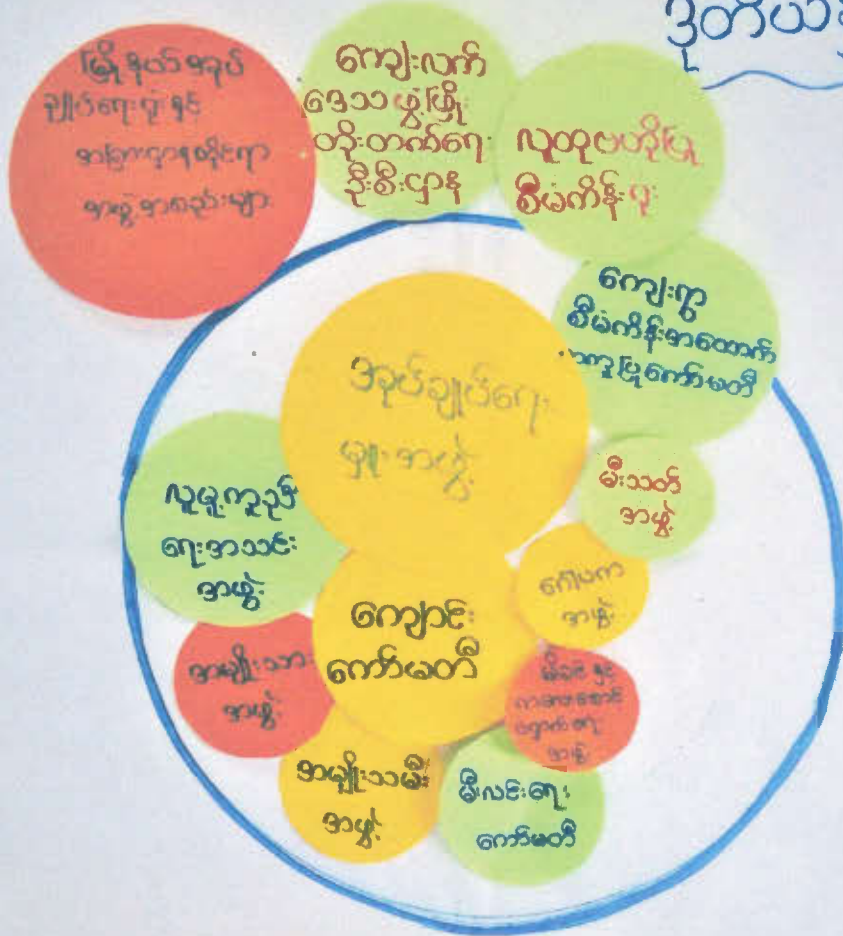 ဒုတိယ
မြို့နယ်အုပ်
ချုပ်ရေးမှူး နှင့်
အခြားဌာနဆိုင်ရာ
အဖွဲ့အစည်းများ
ကျေးလက်
ဒေသဖွံ့ဖြိုး
တိုးတက်ရေး
ဦးစီးဌာန
လူထုဗဟိုပြု
စီမံကိန်းရုံး
ကျေးရွာ
စီမံကိန်းအထောက်
အကူပြုကော်မတီ
အုပ်ချုပ်ရေး
မှူးအဖွဲ့
မီးသတ်
အဖွဲ့
လူမှုကူညီ
ရေးအသင်း
အဖွဲ့
ဂေါပက
အဖွဲ့
ကျောင်း
ကော်မတီ
အမျိုးသား
အဖွဲ့
မိခင် နှင့်
ကလေးစောင့်
ရှောက်ရေး
အဖွဲ့
အမျိုးသမီး
အဖွဲ့
မီးလင်းရေး
ကော်မတီ